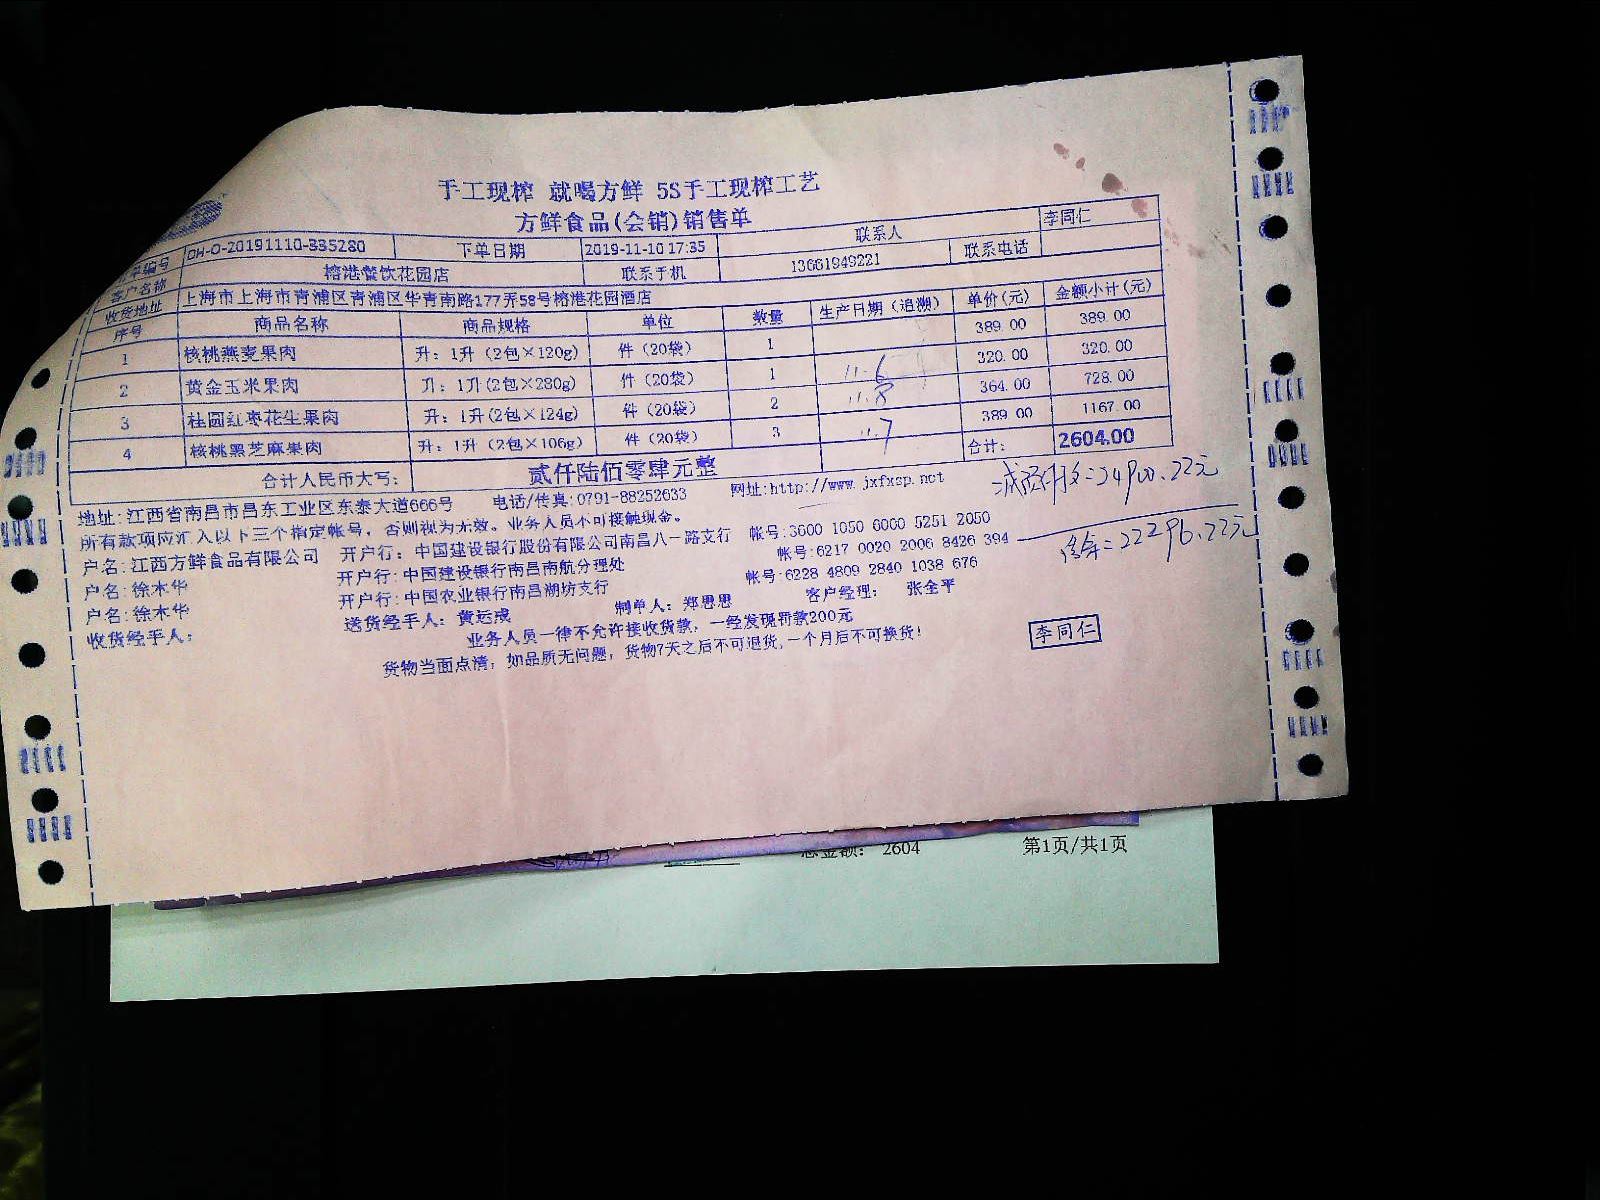 手工现榨 就喝方鲜 5S手工现榨工艺
方鲜食品(会销)销售单
单编号 DH-O-20191110-335280 下单日期 2019-11-10 17:35 联系人 李同仁
客户名称 榕港餐饮花园店 联系手机 13661949221 联系电话
收货地址 上海市上海市青浦区青浦区华青南路177弄58号榕港花园酒店
序号 商品名称 商品规格 单位 数量 生产日期(追溯) 单价(元) 金额小计(元)
1 核桃燕麦果肉 升: 1升 (2包×120g) 件 (20袋) 1 389.00 389.00
2 黄金玉米果肉 升: 1升(2包×280g) 件 (20袋) 1 11.6 320.00 320.00
3 桂圆红枣花生果肉 升: 1升(2包×124g) 件 (20袋) 2 11.8 364.00 728.00
4 核桃黑芝麻果肉 升: 1升 (2包×106g) 件 (20袋) 3 11.7 389.00 1167.00
合计人民币大写: 贰仟陆佰零肆元整 合计: 2604.00
地址:江西省南昌市昌东工业区东泰大道666号 电话/传真:0791-88252633 网址:http://www.jxfxsp.net
24900.22元
所有款项应汇入以下三个指定帐号,否则视为无效。业务人员不可接触现金。
=22296.22元
户名:江西方鲜食品有限公司 开户行: 中国建设银行股份有限公司南昌八一路支行 帐号:3600 1050 6000 5251 2050
户名:徐木华 开户行:中国建设银行南昌南航分理处 帐号:6217 0020 2006 8426 394
户名:徐木华 开户行:中国农业银行南昌湖坊支行 帐号:6228 4809 2840 1038 676
收货经手人: 送货经手人: 黄运成 制单人: 郑思思 客户经理: 张全平
业务人员一律不允许接收货款,一经发现罚款200元
货物当面点清;如品质无问题,货物7天之后不可退货,一个月后不可换货!
李同仁
总金额: 2604 第1页/共1页